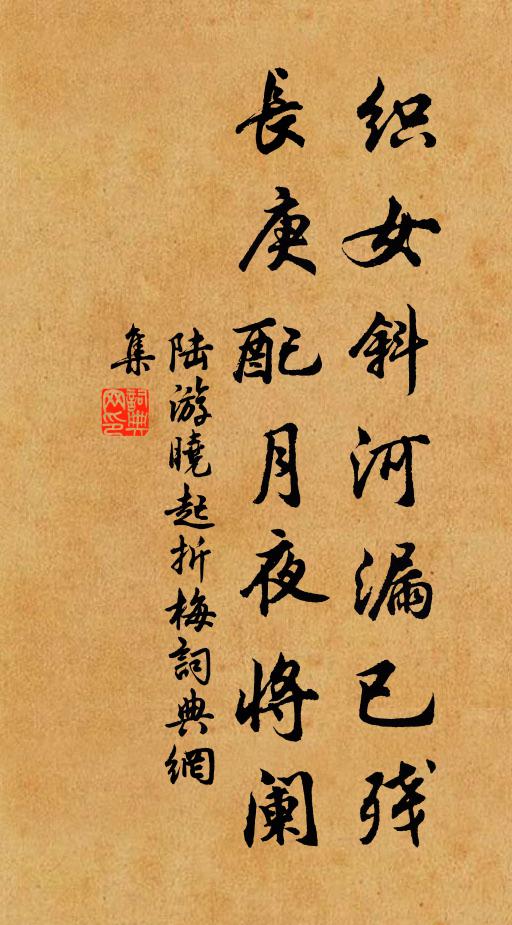 织女斜河漏已残
長庚配月夜将阑
陆游曉起折梅詞典網
集
詞典
网印